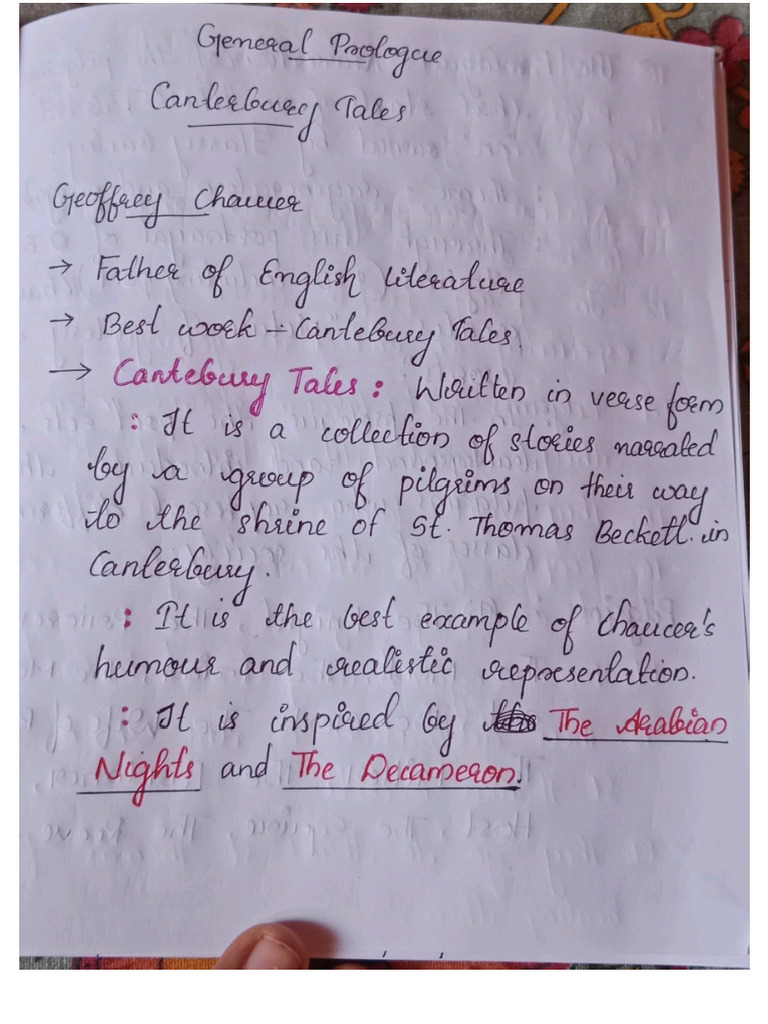 General Prologue
Canterbury Tales
Geoffrey Chaucer
→ Father of English Literature
→ Best work - Cantebury Tales.
→ Cantebury Tales: Written in verse form
: It is a collection of stories narrated
by a group of pilgrims on their way
to the shrine of St. Thomas Beckett. in
Canterbury.
: It is the best example of Chaucer's
humour and realistic representation.
: It is inspired by The Arabian
Nights and The Decameron.